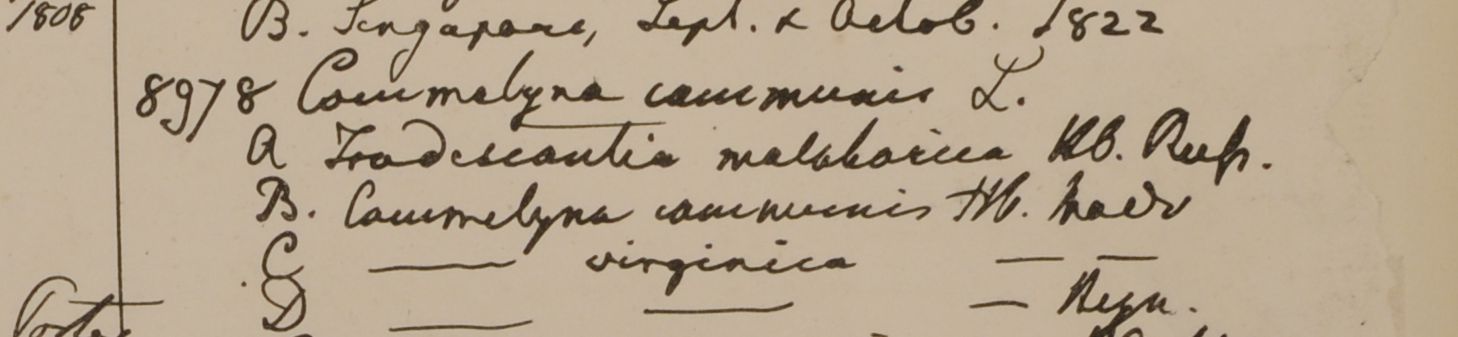 1808 B. Singapore, Sept. & Octob. 1822
8978 Commelyna communis L.
A Tradescantia malabarica Hb. Russ.
B. Commelyna communis Hb. Madr
C — virginica — —
D — — — Heyn.
Porter